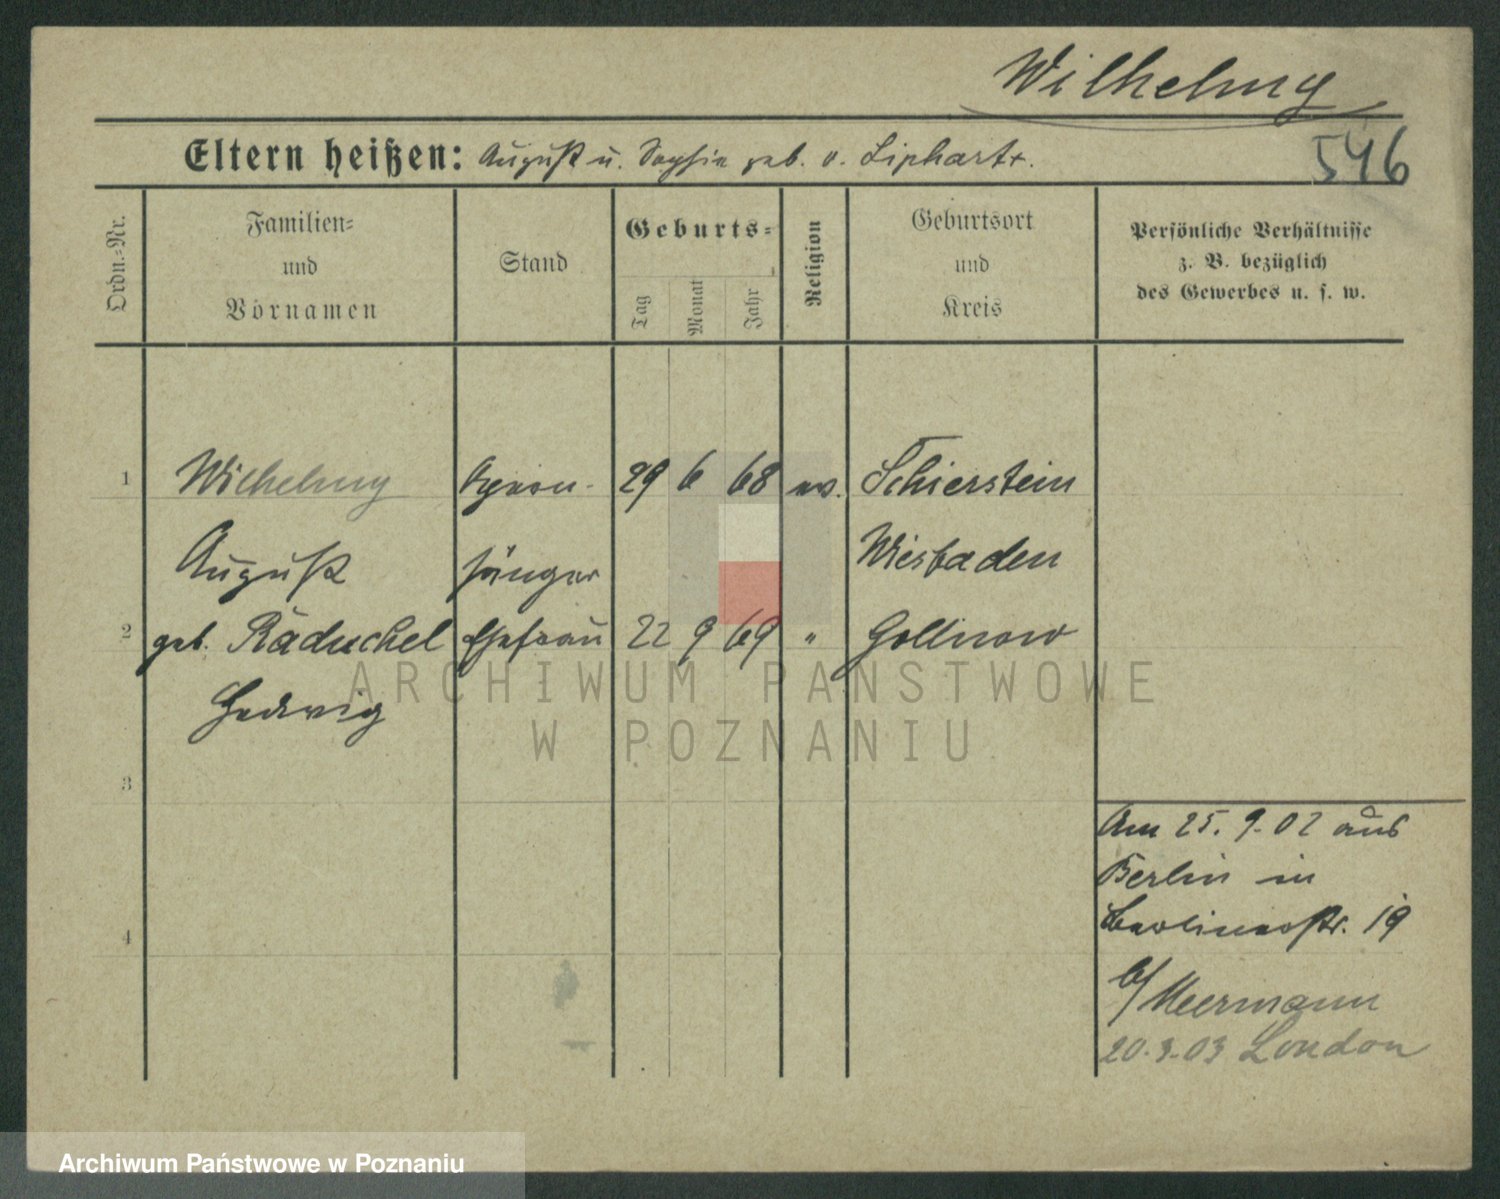 Wilhelmy
546
Eltern heißen: August u. Sophie geb. v. Liphart.
Ordn.-Nr.
Familien-
und
Vornamen
Stand
Geburts-
Tag
Monat
Jahr
Religion
Geburtsort
und
Kreis
Persönliche Verhältnisse
z. B. bezüglich
des Gewerbes u. s. w.
1 Wilhelmy Opern- 29 6 68 ev. Schierstein
August sänger Wiesbaden
2 geb. Räduchel Ehefrau 22 9 69 " Gollnow
Hedwig
3
4
Am 25. 9. 02 aus
Berlin in
Berlinerstr. 19
b/ Meermann
20.3.03 London
ARCHIWUM PAŃSTWOWE
W POZNANIU
Archiwum Państwowe w Poznaniu